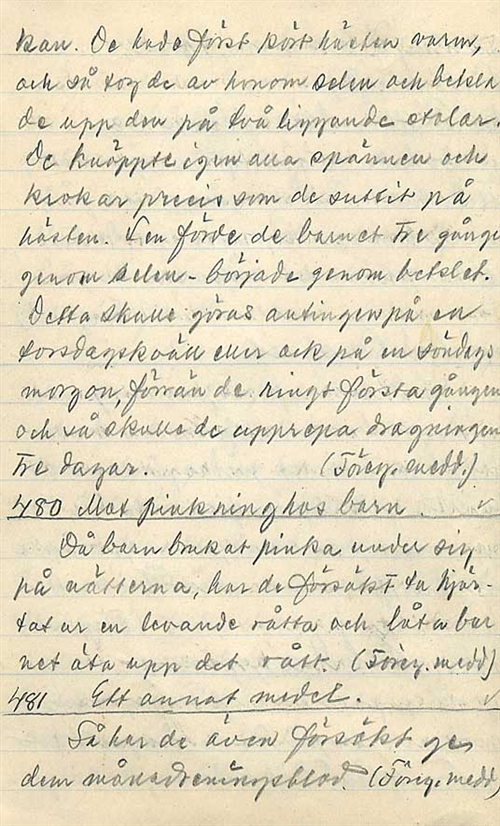 kan. De hade först kört hästen varm,
och så tog de av honom selen och betsla
de upp den på två liggande stolar.
De knäppte igen alla spännen och
krokar precis som de suttit på
hästen. Sen förde de barnet tre gånger
genom selen - började genom betslet.
Detta skulle göras antingen på en
torsdagskväll eller ock på en söndags
morgon, förrän de ringt första gången
och så skulle de upprepa dragningen
tre dagar. (Föreg. medd.)
480 Mot pinkning hos barn.
Då barn brukat pinka under sig
på nätterna, har de försökt ta hjär-
tat ur en levande råtta och låta bar
net äta upp det rått. (Föreg. medd)
481 Ett annat medel.
Så har de även försökt ge
dem månadreningsblod. (Föreg. medd)